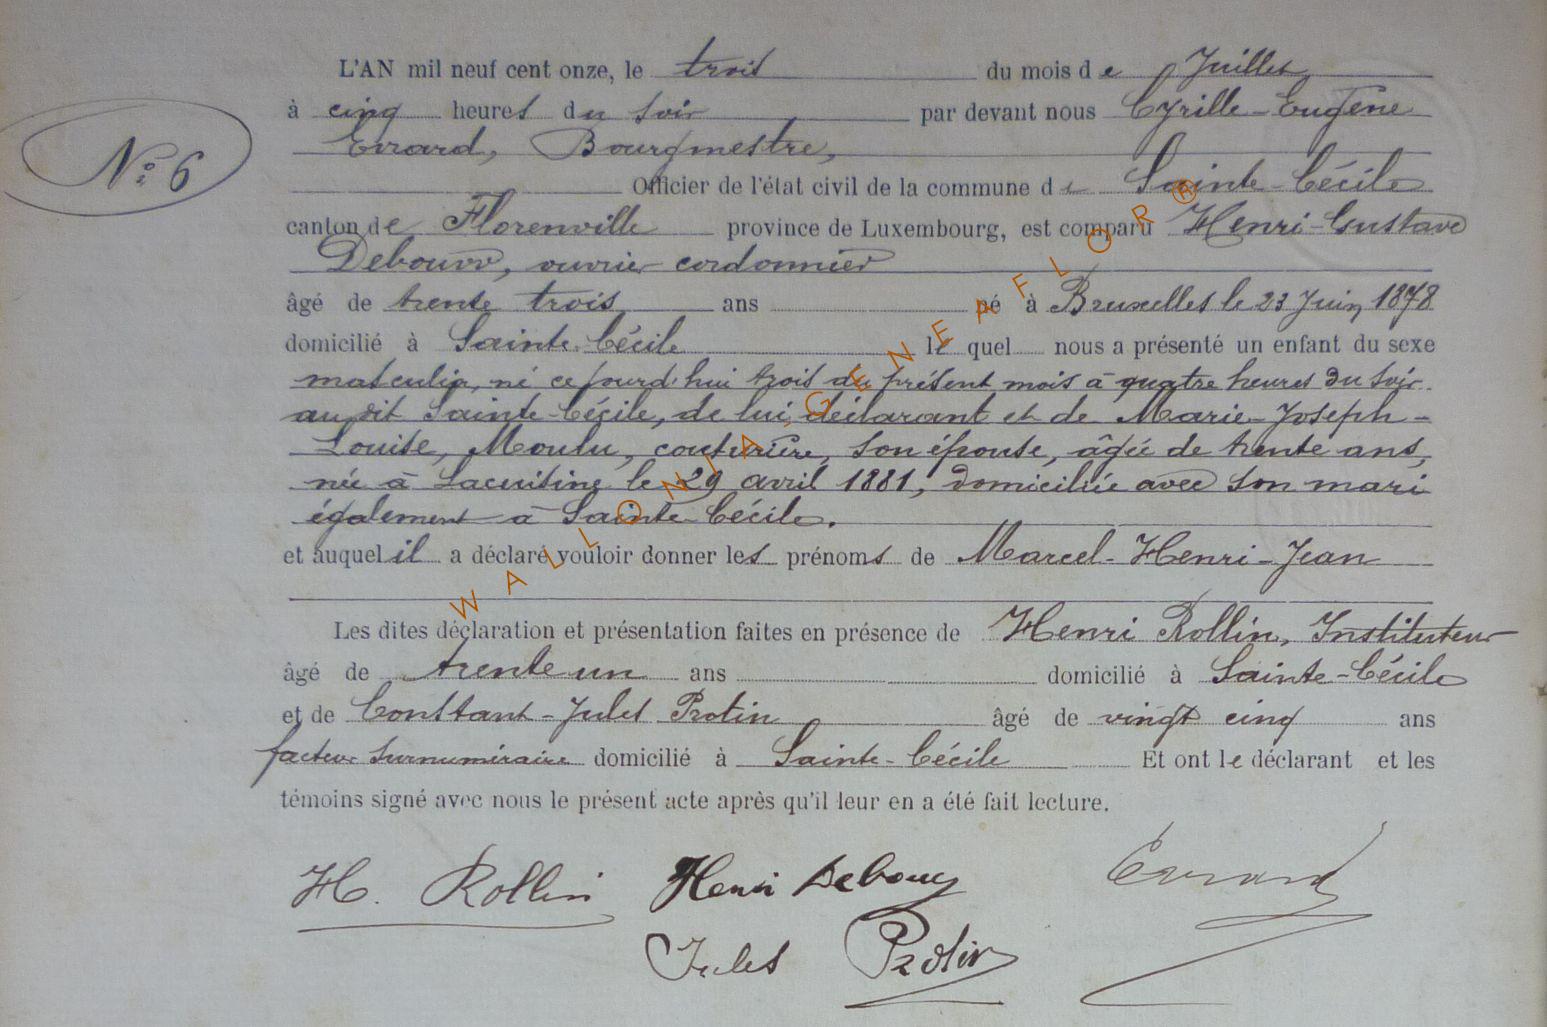 L'AN mil neuf cent onze, le trois du mois de Juillet
à cinq heures du soir par devant nous Cyrille-Eugène
Evrard, Bourgmestre,
N° 6
Officier de l'état civil de la commune de Sainte-Cécile
canton de Florenville province de Luxembourg, est comparu Henri-Gustave
ouvrier cordonnier
âgé de trente trois ans né à Bruxelles le 23 Juin 1878
domicilié à Sainte-Cécile le quel nous a présenté un enfant du sexe
masculin, né ce jourd'hui trois du présent mois à quatre heures du soir
au dit Sainte-Cécile, de lui déclarant et de Marie-Joseph-
Louise, Moulu, couturière, son épouse, âgée de trente ans,
née à Lacuisine le 29 avril 1881, domiciliée avec son mari
également à Sainte-Cécile.
et auquel il a déclaré vouloir donner les prénoms de Marcel-Henri-Jean
Les dites déclaration et présentation faites en présence de Henri Rollin, Instituteur
âgé de trente un ans domicilié à Sainte-Cécile
et de Constant-Jules Protin âgé de vingt cinq ans
facteur surnuméraire domicilié à Sainte-Cécile Et ont le déclarant et les
témoins signé avec nous le présent acte après qu'il leur en a été fait lecture.
H. Rollin Henri Debouy Evrard
Jules Protin
WALLONIA.GENEAFLOR®